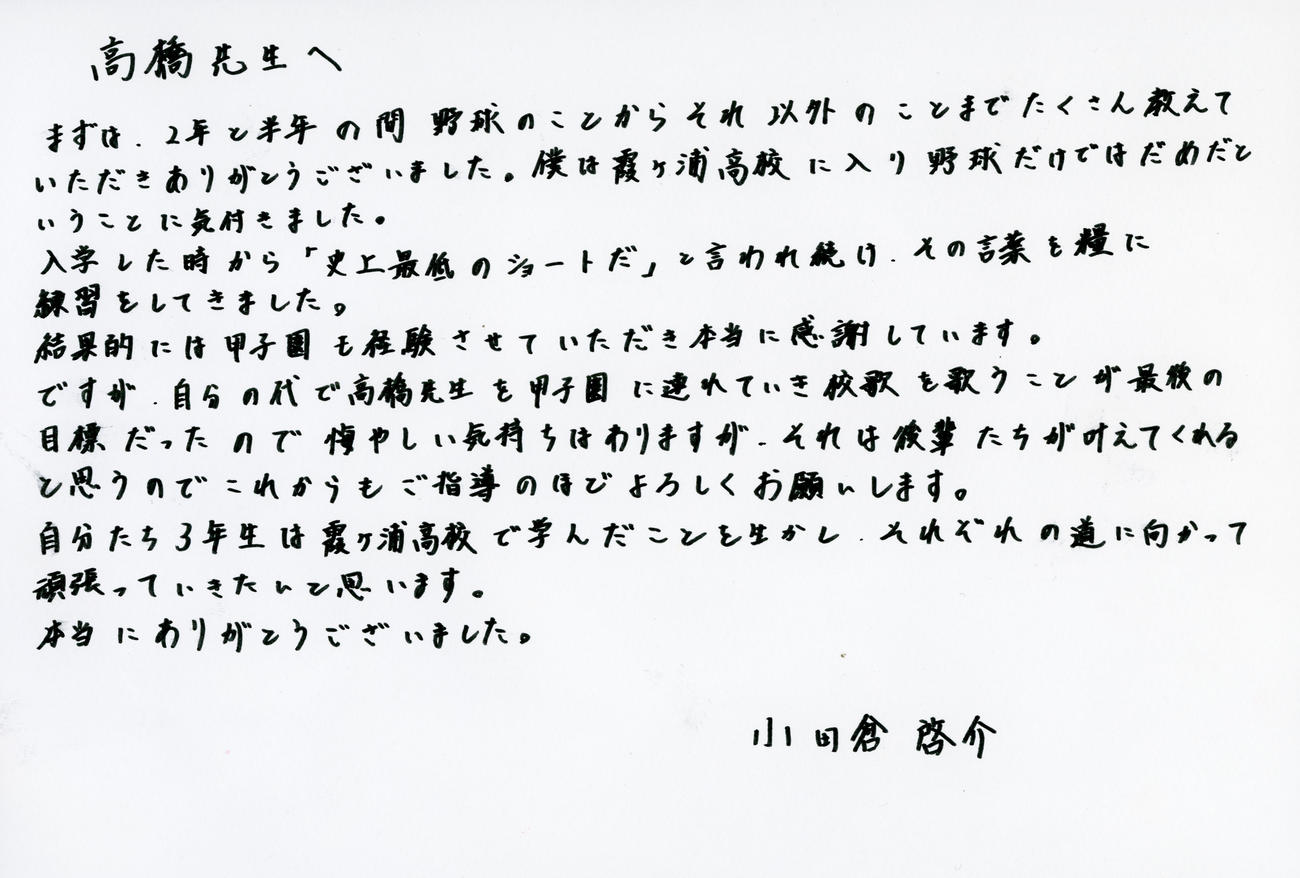 高橋先生へ
まずは、2年と半年の間野球のことからそれ以外のことまでたくさん教えて
いただきありがとうございました。僕は霞ヶ浦高校に入り野球だけではだめだと
いうことに気付きました。
入学した時から「史上最低のショートだ」と言われ続け、その言葉を糧に
練習をしてきました。
結果的には甲子園も経験させていただき本当に感謝しています。
ですが、自分の代で高橋先生を甲子園に連れていき校歌を歌うことが最後の
目標だったので悔やしい気持ちはありますが、それは後輩たちが叶えてくれる
と思うのでこれからもご指導のほどよろしくお願いします。
自分たち3年生は霞ヶ浦高校で学んだことを生かし、それぞれの道に向かって
頑張っていきたいと思います。
本当にありがとうございました。
小田倉 啓介